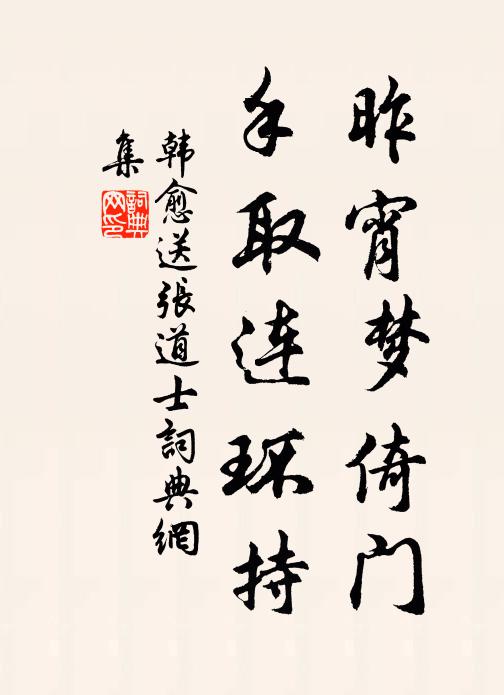 昨宵梦倚门
手取连环持
韩愈送張道士詞典網
集
詞典
网印